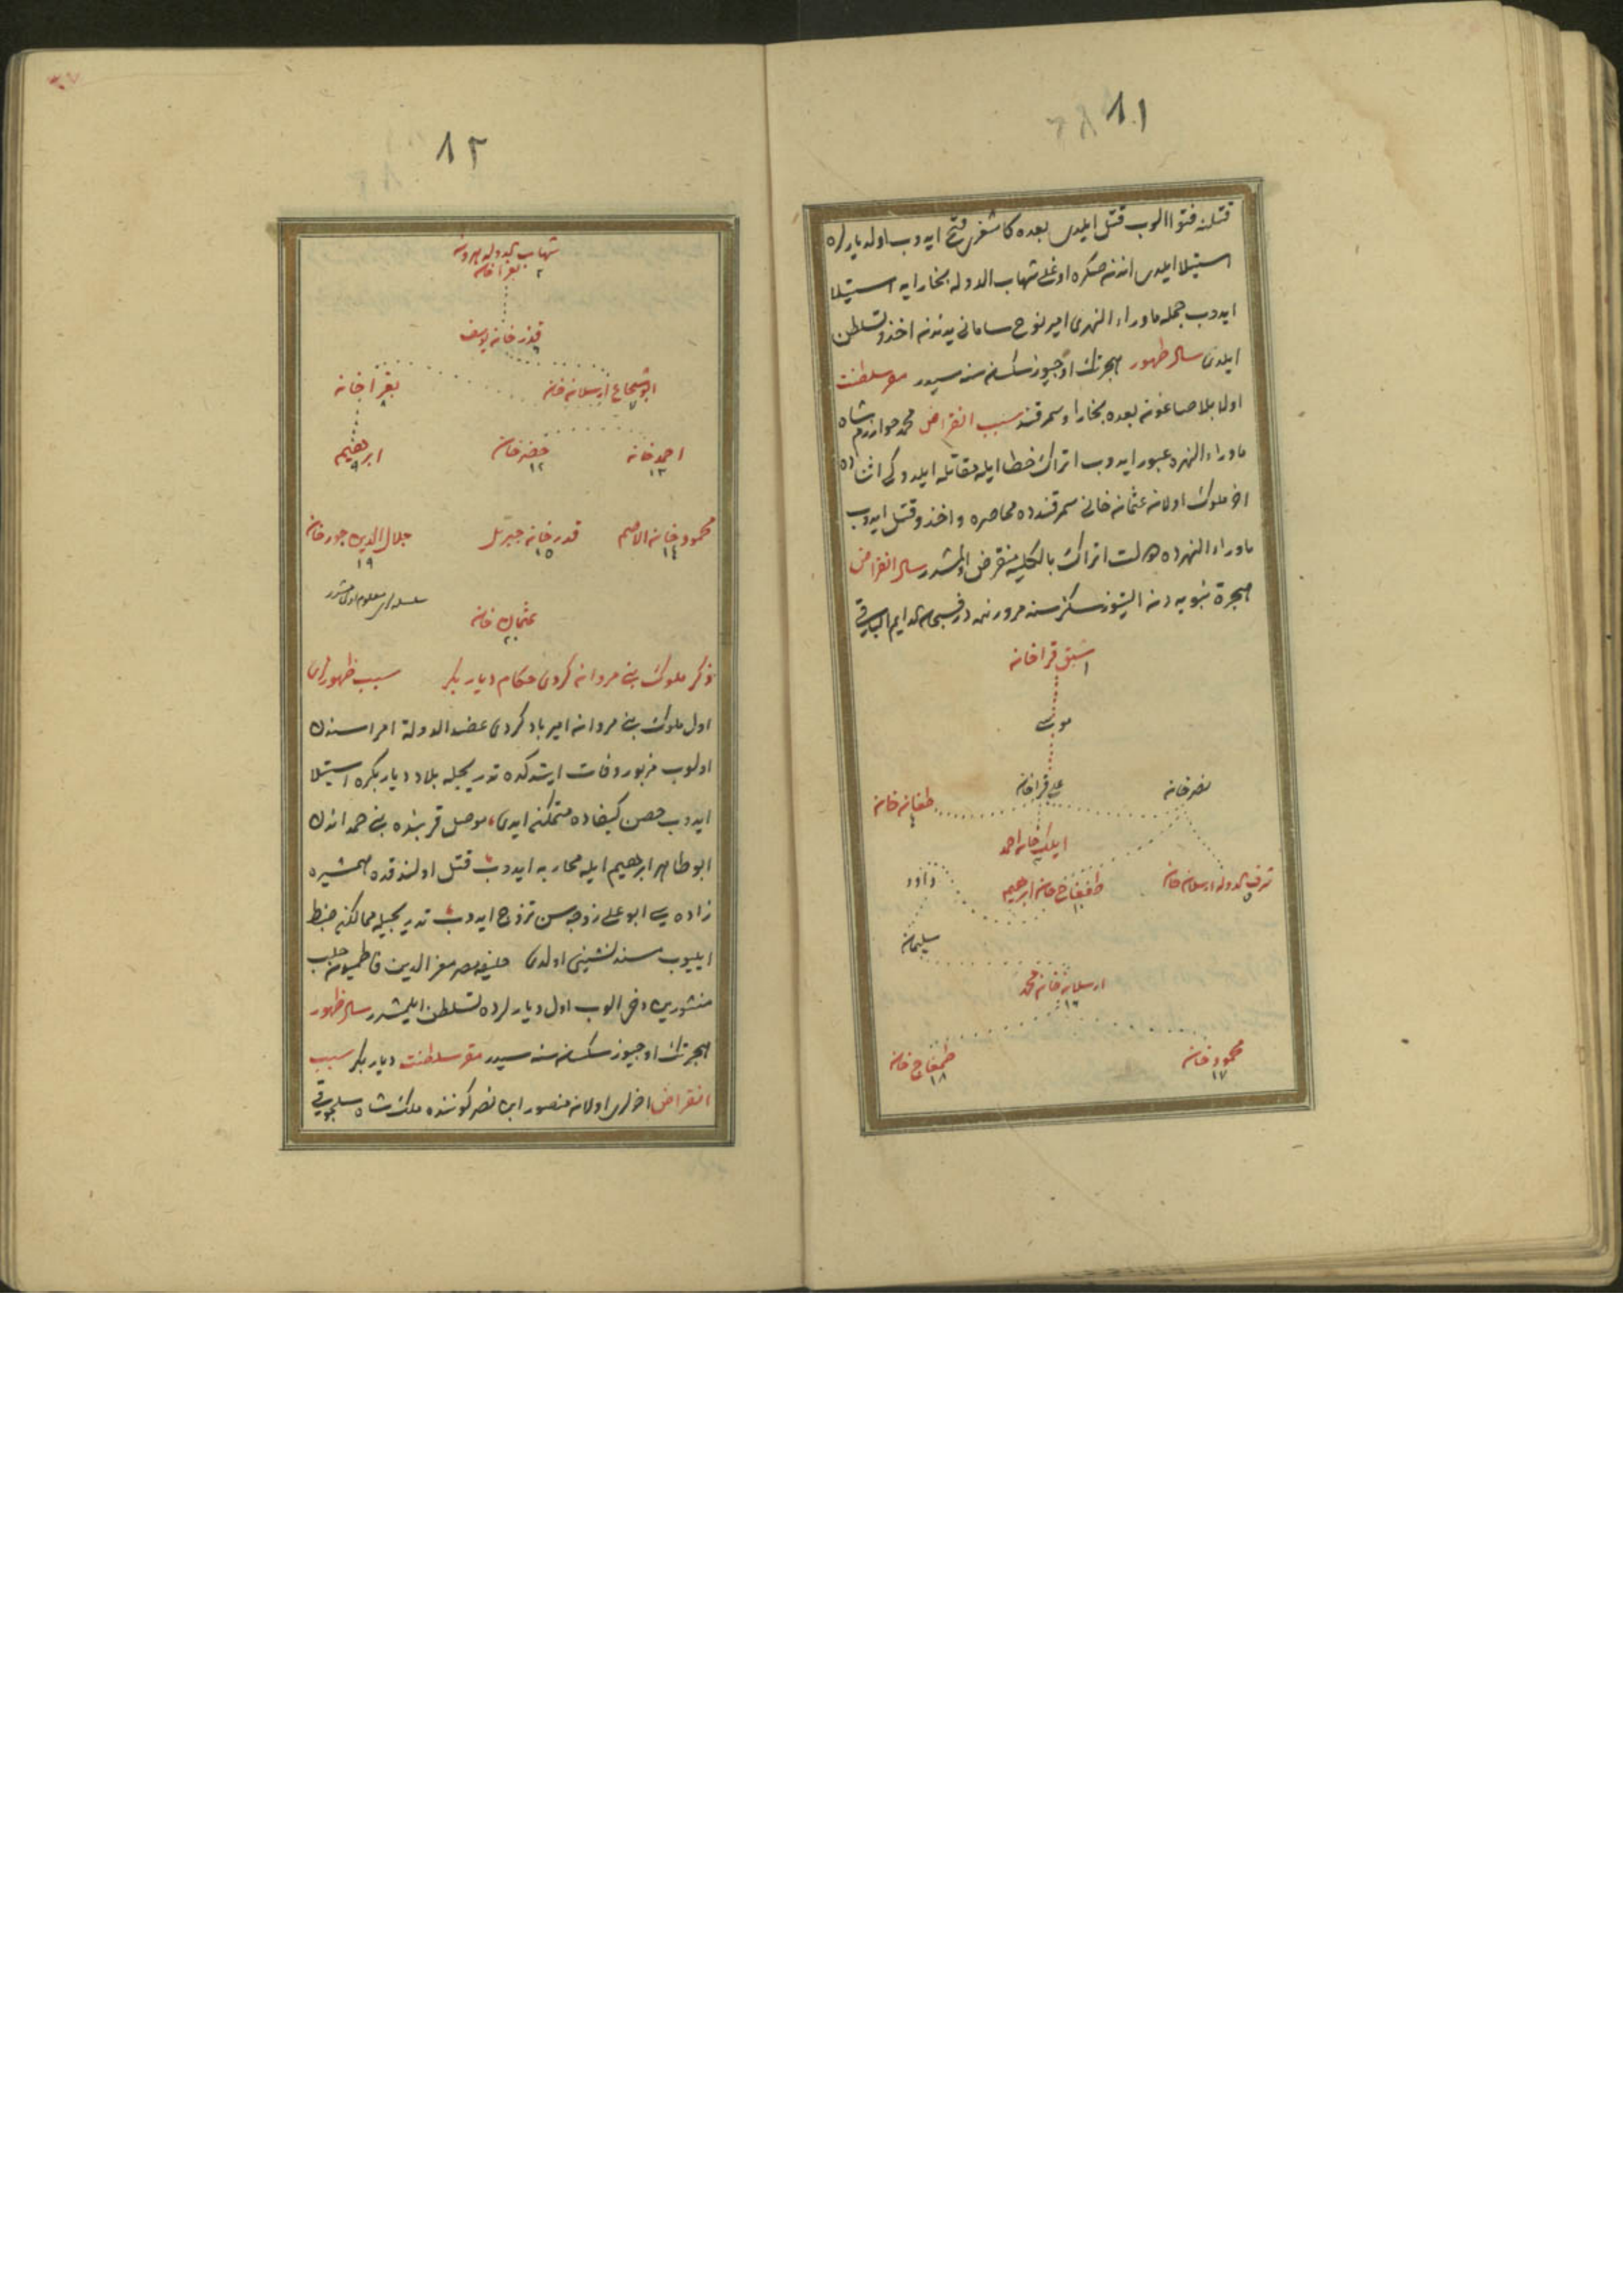 ٨١
قتلنه فتوا الوب قتل ايلدى بعده كاشغرى فتح ايدوب اولديارلره
استيلا ايلدى اندن صكره اوغلى شهاب الدوله بخارايه استيلا
ايدوب جمله ماوراء النهرى امير نوح سامانى يدندن اخذ وتسلطن
ايلدى سال ظهور هجرتك اوجيوز سكسان سنه سيدر مقر سلطنت
اولا بلاصاغون بعده بخارا وسمرقند سبب انقراض محمد خوارزم شاه
ماوراء النهره عبور ايدوب اتراك خطا ايله مقاتله ايلدوكى اثناده
اخر ملوك اولان عثمان خانى سمرقندده محاصره واخذ وقتل ايدوب
ماوراء النهرده دولت اتراك بالكليه منقرض اولمشدر سال انقراض
هجرة نبويه دن التيوز سكز سنه مرورنده در فسبحان الدايم الباقى
شبق قراخان
١
موسى
نصر خان
على قراخان
طغان خان
٤
ايلك خان احمد
شرف الدوله ارسلان خان
٥
طفغاج خان ابرهيم
١٠
داود
سليمان
ارسلان خان محمد
١٦
محمود خان
١٧
طمغاج خان
١٨
٨٢
شهاب الدوله هرون
بغرا خان
٢
قدر خان يوسف
٦
ابو شجاع ارسلان خان
٧
بغرا خان
٨
احمد خان
١٣
خضر خان
١٢
ابرهيم
٩
محمود خان الاصم
١٤
قدر خان جبرئل
١٥
جلال الدين جورخان
١٩
سلسله لرى معلوم اولمشدر
عثمان خان
٢٠
ذكر ملوك بنى مروان كردى حكام ديار بكر سبب ظهورلرى
اول ملوك بنى مروان امير باد كردى عضد الدولة امراسندن
اولوب مزبور وفات ايتدكده تدريجيله بلاد ديار بكره استيلا
ايدوب حصن كيفاده متمكن ايدى موصل قربنده بنى حمداندن
ابو طاهر ابرهيم ايله محاربه ايدوب قتل اولندقده همشيره
زاده سى ابو على زوجه سن تزوج ايدوب تدريجيله ممالكن ضبط
ايليوب مسند نشينى اولدى خليفه مصر معز الدين فاطميون حلب
منشورين دخى الوب اول ديارلرده تسلطن ايلمشدر سال ظهور
هجرتك اوجيوز سكسان سنه سيدر مقر سلطنت ديار بكر سبب
انقراض اخرلرى اولان منصور ابن نصر كوننده ملك شاه سلجوقى